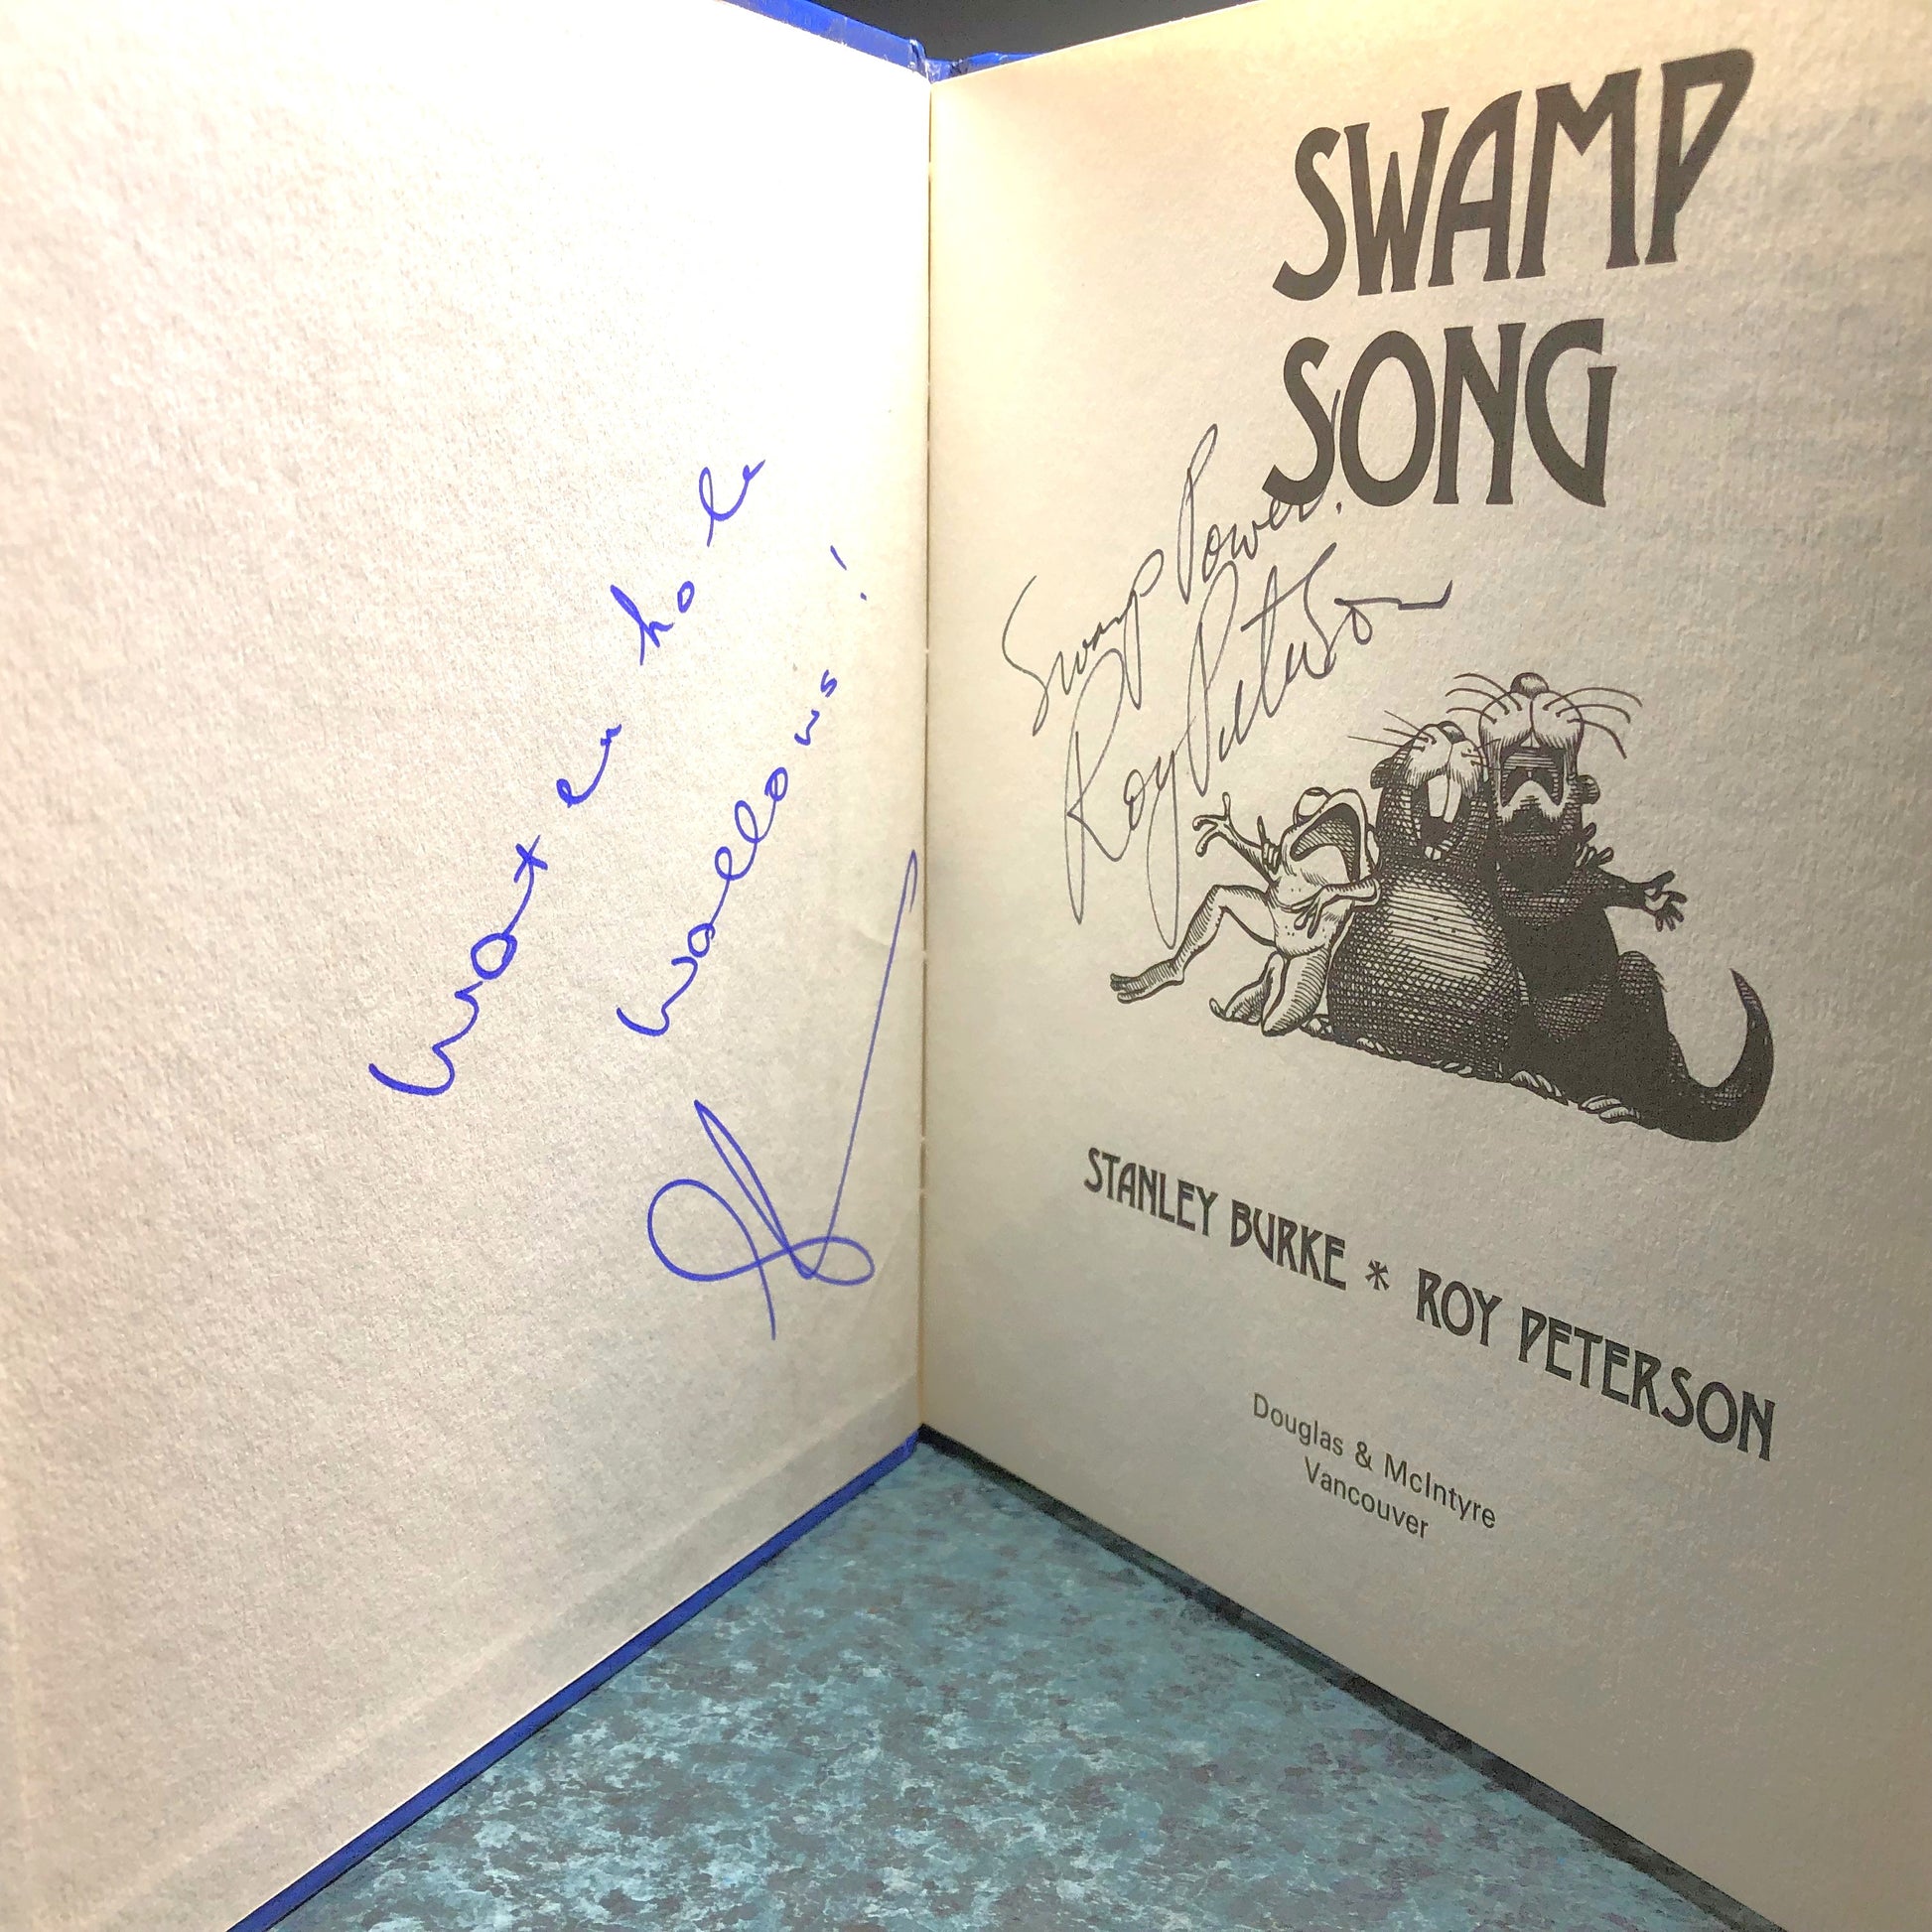 Water hole
Wallows!
SWAMP
SONG
Swamp Power!
Roy Peterson
STANLEY BURKE * ROY PETERSON
Douglas & McIntyre
Vancouver